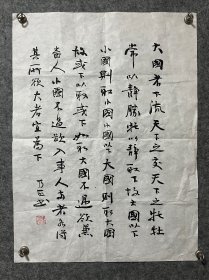 大國者下流天下之交天下之牝
常以靜勝牡以靜為下故大國以下
小國則取小國小國以下大國則取大國
故或下以取或下而取大國不過欲兼
畜人小國不過欲入事人夫兩者各得
其所欲大者宜為下